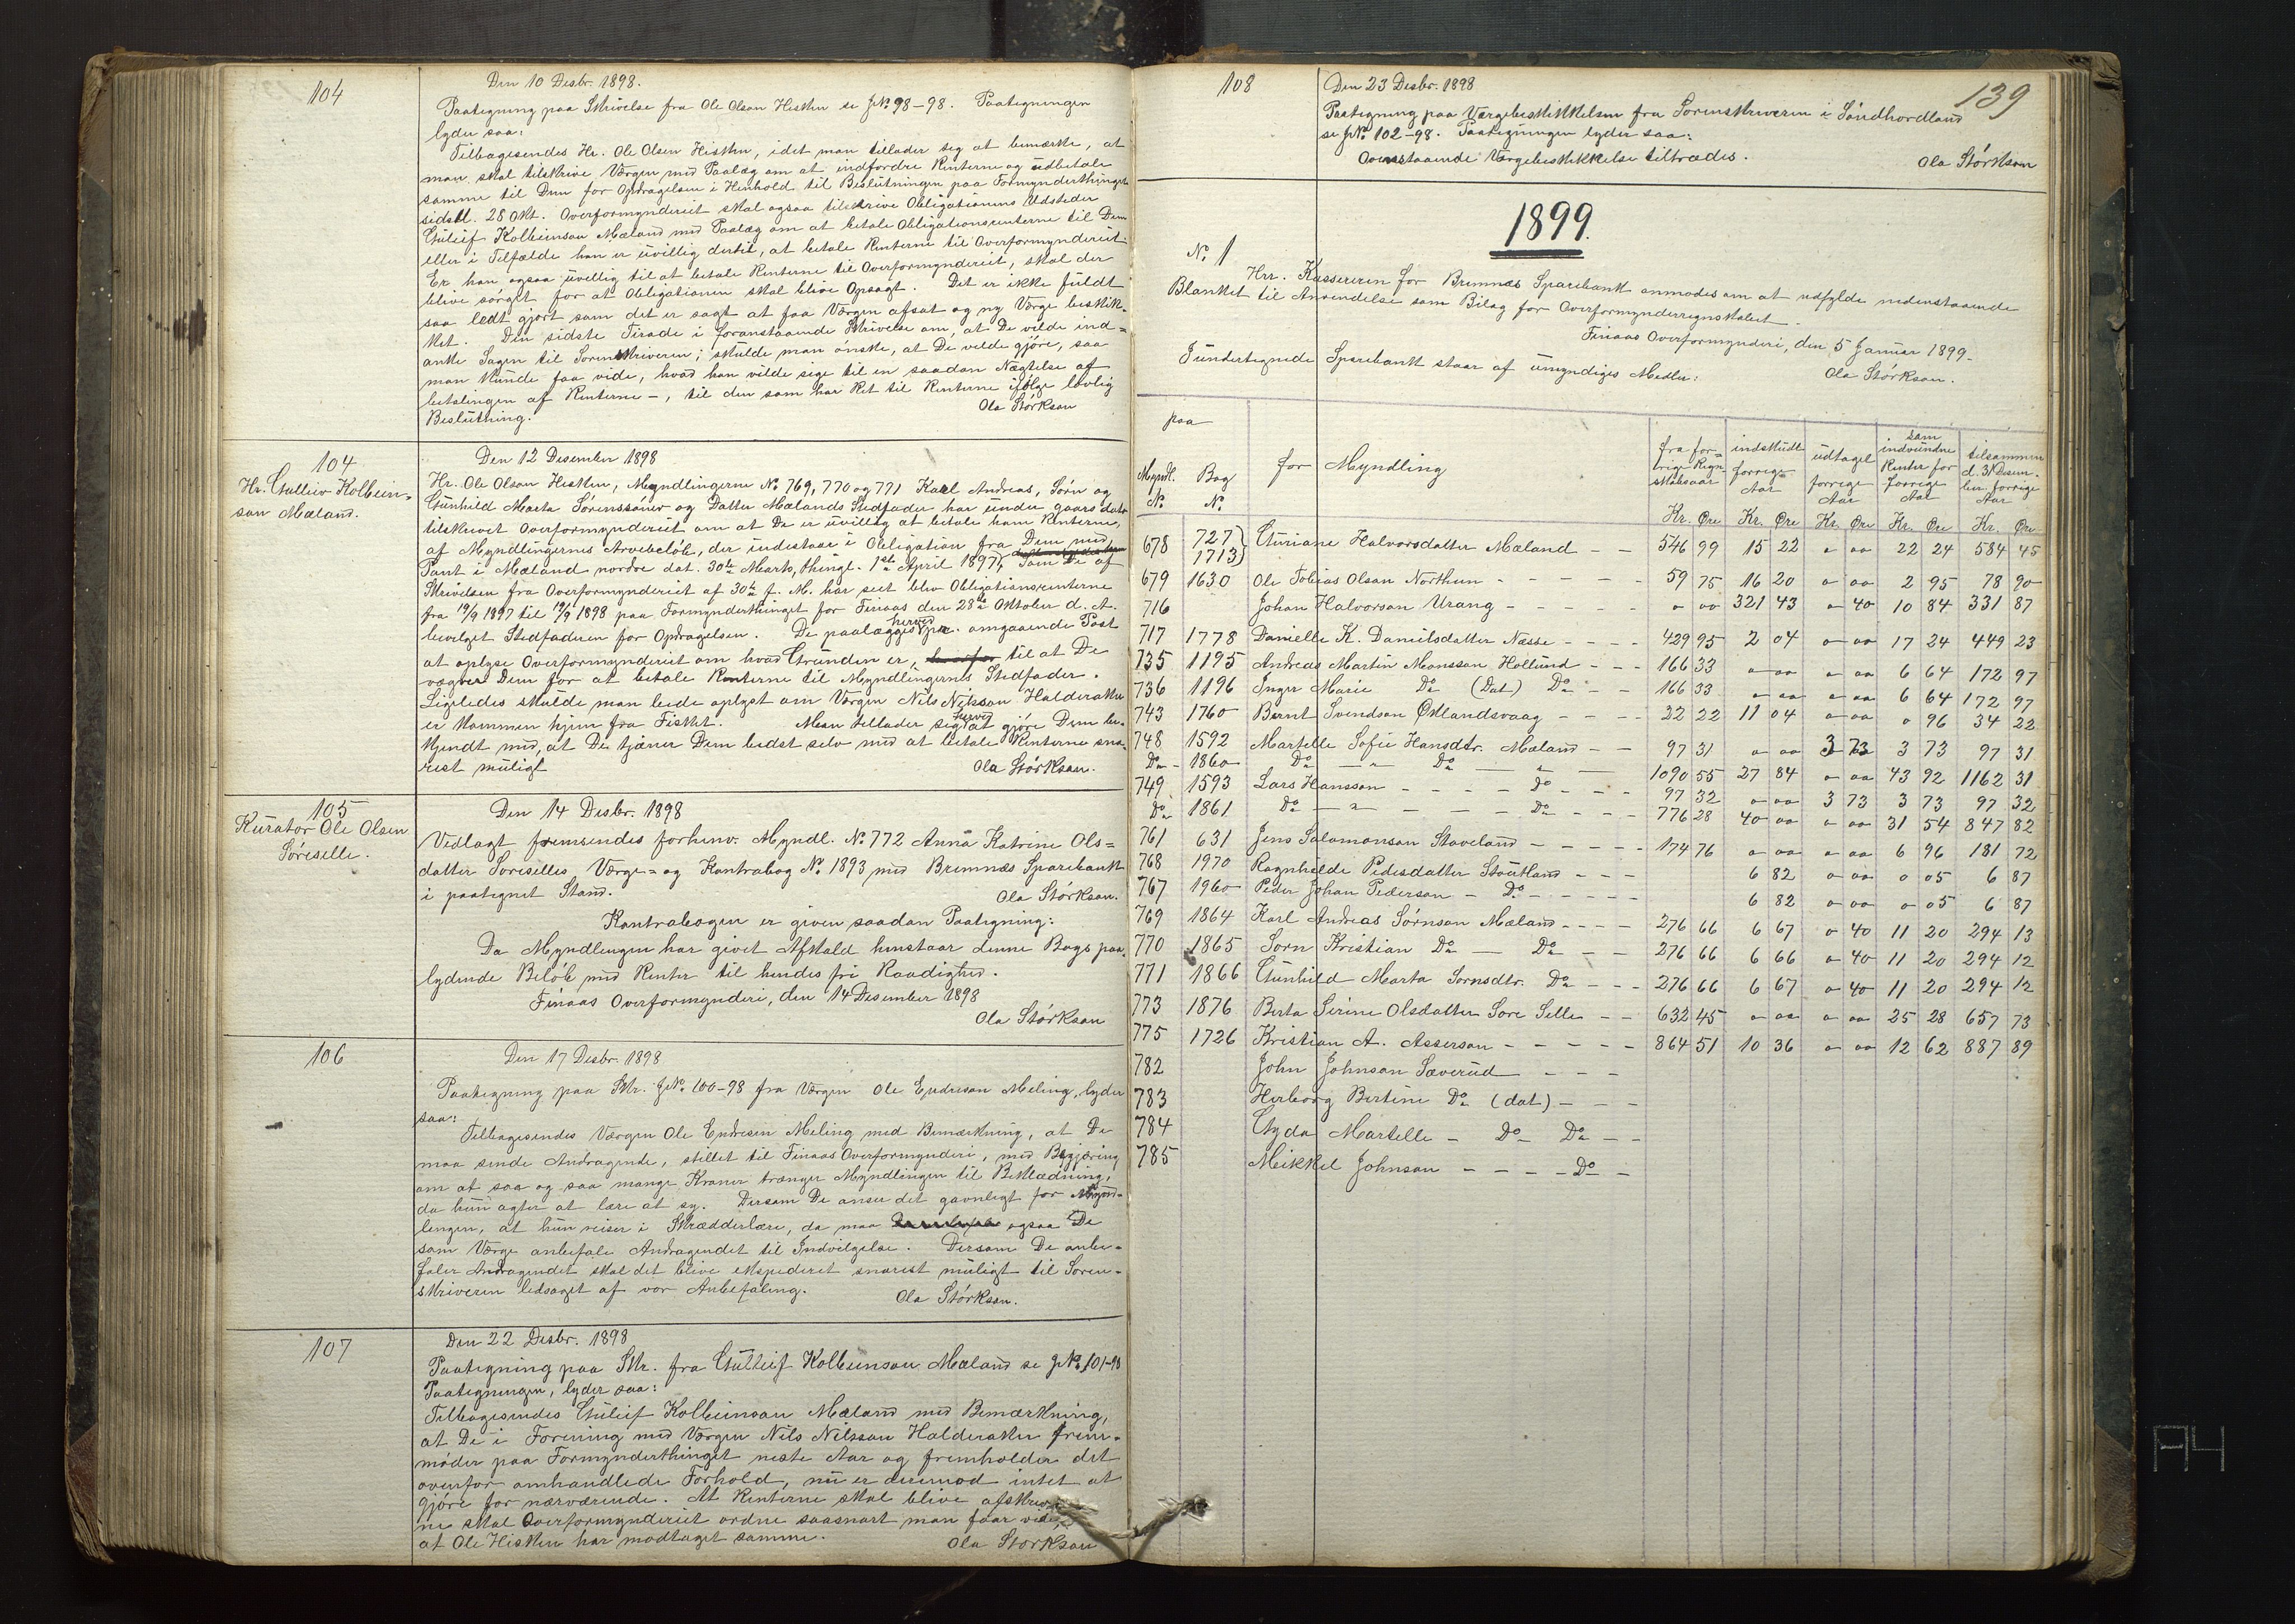 104
Den 10 Desbr. 1898.
Paategning paa Skrivelse fra Ole Olson Hisken se J.No. 98-98. Paategningen
lyder saa:
Tilbagesendes Hr. Ole Olsen Hisken, idet man tillader sig at bemærke, at
man skal tilskrive Værgen med Paalæg om at indfordre Renterne og udbetale
samme til Dem for Opdragelsen i Henhold til Beslutningen paa Formynderthinget
sidstl. 28 Okt. Overformynderiet skal ogsaa tilskrive Obligationens Udsteder
Gulleif Kolbeinson Mæland med Paalæg om at betale Obligationsrenterne til Dem
eller i Tilfælde han er uvillig dertil, at betale Renterne til Overformynderiet.
Er han ogsaa uvillig til at betale Renterne til Overformynderiet, skal der
blive sørget for at Obligationen skal blive Opsagt. Det er ikke fuldt
saa ledt gjort som det er sagt at faa Værgen afsat og ny Værge beskik-
ket. Den sidste Tirade i foranstaaende Skrivelse om, at De vilde ind=
anke Sagen til Sorenskriveren; skulde man ønske, at De vilde gjøre, saa
man kunde faa vide, hvad han vilde sige til en saadan Nægtelse af
betalingen af Renterne -, til den som har Ret til Renterne ifølge lovlig
Beslutning.
Ola Størkson
104
Hr. Gulleiv Kolbein=
son Mæland.
Den 12 Desember 1898
Hr. Ole Olson Hisken, Myndlingerne No. 769, 770 og 771 Karl Andreas, Sørn og
Gunhild Marta Sørenssønner og Datter Mælands Stedfader har under gaars dato
tilskrevet Overformynderiet om at De er uvillig at betale ham Renterne,
af Myndlingernes Arvebeløb, der indestaar i Obligation fra Dem med
Pant i Mæland nordre dat. 30te Marts, thingl. 1ste April 1897, Som De af
Skrivelsen fra Overformynderiet af 30te f. M. har seet blev Obligationsrenterne
fra 19/9 1897 til 19/9 1898 paa Formynderthinget for Finaas den 28de Oktober d. A.
bevilget Stedfaderen for Opdragelsen. De paalægges herved pr. omgaaende Post
at oplyse Overformynderiet om hvad Grunden er, til at De
vægrer Dem for at betale Renterne til Myndlingernes Stedfader.
Ligeledes skulde man bede oplyst om Værgen Nils Nilsson Halderaker
er kommen hjem fra Fisket. Man tillader sig herved at gjøre Dem be-
kjendt med, at De tjæner Dem bedst selv med at betale Renterne sna-
rest muligt
Ola Størkson.
105
Kurator Ole Olsen
Søreselle.
Den 14 Desbr. 1898
Vedlagt fremsendes forhenv. Myndl. No. 772 Anna Katrine Ols=
datter Soreselles Værge= og Kontrabog No. 1893 med Bremnæs Sparebank
i paategnet Stand.
Ola Størkson.
Kontrabogen er given saadan Paategning:
Da Myndlingen har givet Afkald henstaar denne Bogs paa=
lydende Beløb med Renter til hendes fri Raadighed.
Finaas Overformynderi, den 14 Desember 1898
Ola Størkson
106
Den 17 Desbr. 1898
Paategning paa Skr. J.No. 100-98 fra Værgen Ole Endreson Meling, lyder
saa:
Tilbagesendes Værgen Ole Endresen Meling med Bemærkning, at De
maa sende Andragende, stillet til Finaas Overformynderi, med Begjæring
om at saa og saa mange Kroner trænger Myndlingen til Beklædning,
da hun agter at lære at sy. Dersom De anser det gavnligt for Mynd-
lingen, at hun reiser i Skrædderlære, da maa ogsaa De
som Værge anbefale Andragendet til Indvilgelse. Dersom De anbe-
faler Andragendet skal det blive ekspederet snarest muligt til Soren-
skriveren ledsaget af vor Anbefaling.
Ola Størkson.
107
Den 22 Desbr. 1898
Paategning paa Skr. fra Gulleif Kolbeinson Mæland se J.No. 101-98
Paategningen, lyder saa:
Tilbagesendes Gulleif Kolbeinson Mæland med Bemærkning,
at De i Forening med Værgen Nils Nilsson Halderaker frem-
møder paa Formynderthinget næste Aar og fremholder det
ovenfor omhandlede Forhold, nu er derimod intet at
gjøre for nærværende. At Renterne skal blive afskrev-
ne skal Overformynderiet ordne saasnart man faar vide,
at Ole Hisken har modtaget samme.
Ola Størkson
139
108
Den 23 Desbr. 1898
Paategning paa Værgebeskikkelsen fra Sorenskriveren i Søndhordland
se J.No. 102-98. Paategningen lyder saa:
Ovenstaaende Værgebeskikkelse tiltrædes.
Ola Størkson
1899.
No. 1
Hrr. Kassereren for Bremnæs Sparebank anmodes om at udfylde nedenstaaende
Blanket til Anvendelse som Bilag for Overformynderregnskabet.
Finaas Overformynderi, den 5 Januar 1899.
Ola Størkson.
I undertegnede Sparebank staar af umyndiges Midler:
paa
Myndl. No. | Bog No. | for Myndling | fra for-rige Regn-skabsaar | indskudt forrige Aar | udtaget forrige Aar | som indvundne Renter for forrige Aar | tilsammen d. 31 Desem-ber forrige Aar
Kr. Øre Kr. Øre Kr. Øre Kr. Øre Kr. Øre
678 727 1713 } Guriane Halvorsdatter Mæland - - 546 99 15 22 " "" 22 24 584 45
679 1630 Ole Tobias Olson Northun - - - - - 59 75 16 20 " "" 2 95 78 90
716 Johan Halvorson Urang - - - - - " "" 321 43 " 40 10 84 331 87
717 1778 Danielle K. Danielsdatter Næsse - - - - 429 95 2 04 " "" 17 24 449 23
735 1195 Andreas Martin Monsson Hollund - - - 166 33 " "" " "" 6 64 172 97
736 1196 Inger Marie Do (Dat.) Do - - 166 33 " "" " "" 6 64 172 97
743 1760 Bernt Svendson Øklandsvaag - - - - 22 22 11 04 " "" " 96 34 22
748 1592 Martelle Sofie Hansdtr. Mæland - - 97 31 " "" 3 73 3 73 97 31
Do - 1860 Do - " - Do - " - 1090 55 27 84 " "" 43 92 1162 31
749 1593 Lars Hansson - - - - Do - - - 97 32 " "" 3 73 3 73 97 32
Do 1861 Do - " - - - Do - - - 776 28 40 "" " "" 31 54 847 82
761 631 Jens Salamonson Stoveland - - - - - 174 76 " "" " "" 6 96 181 72
768 1970 Ragnhilde Pedersdatter Stoutland - - - 6 82 " "" " 05 6 87
767 1960 Peder Johan Pederson - Do - - - - - 6 82 " "" " 05 6 87
769 1864 Karl Andreas Sørnson Mæland - - - - 276 66 6 67 " 40 11 20 294 13
770 1865 Sørn Kristian Do - Do - - 276 66 6 66 " 40 11 20 294 12
771 1866 Gunhild Marta Sornsdtr. Do - - - 276 66 6 67 " 40 11 20 294 12
773 1876 Berta Serine Olsdatter Sore Selle - - 632 45 " "" " "" 25 28 657 73
775 1726 Kristian A. Asserson - - - - - 864 51 10 36 " "" 12 62 887 89
782 John Johnson Sæverud - - -
783 Herborg Bertine Do (dat) - - -
784 Gyda Martelle - Do Do - -
785 Mikkel Johnson - - - - Do -